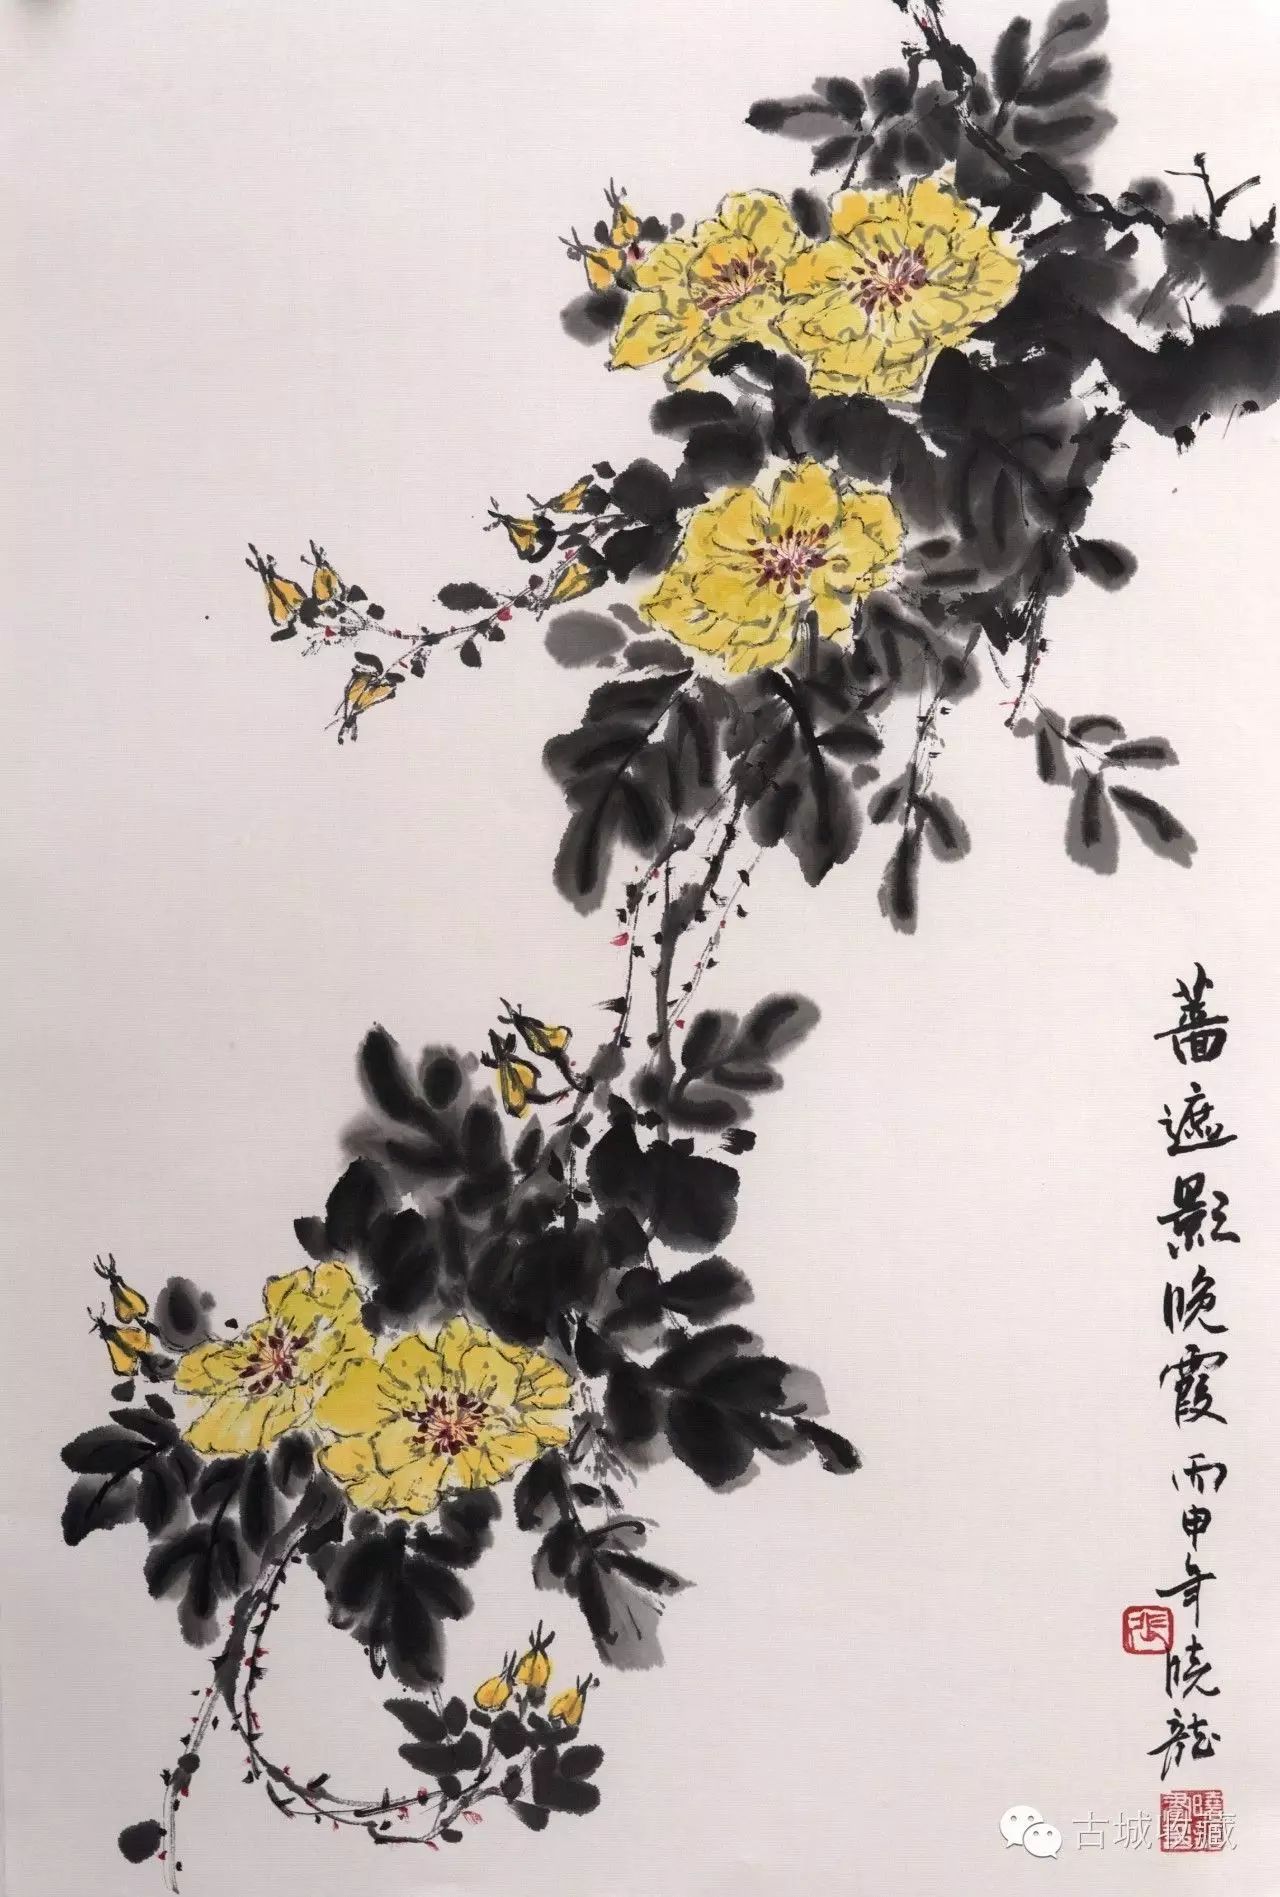 薔遮影晚霞 丙申年 晓龍
張
古城收藏